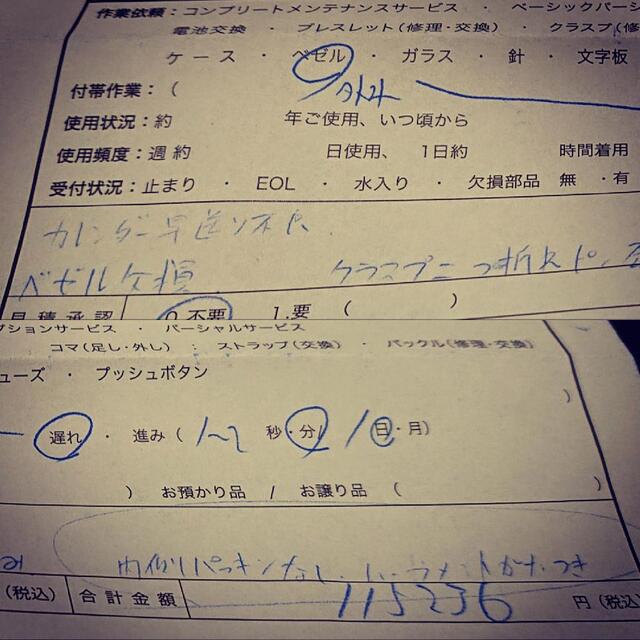 作業依頼：コンプリートメンテナンスサービス ・ ベーシックパーシ
電池交換 ・ ブレスレット(修理・交換) ・ クラスプ(修
ケース ・ ベゼル ・ ガラス ・ 針 ・ 文字板
付帯作業：(
使用状況：約 年ご使用、いつ頃から
使用頻度：週 約 日使用、 1日約 時間着用
受付状況：止まり ・ EOL ・ 水入り ・ 欠損部品 無 ・有
カレンダー早送り不良
ベゼル欠損 クラスプ二つ折れピン
見積承認 0.不要 1.要 ( )
プションサービス ・ パーシャルサービス
コマ(足し・外し) ： ストラップ(交換) ・ バックル(修理・交換)
ューズ ・ プッシュボタン
)
遅れ ・ 進み ( 1〜2 秒・分/ 1 日・月)
) お預かり品 / お譲り品 ( )
内側パッキンなし がたつき
(税込) 合計金額 115236 円(税込)